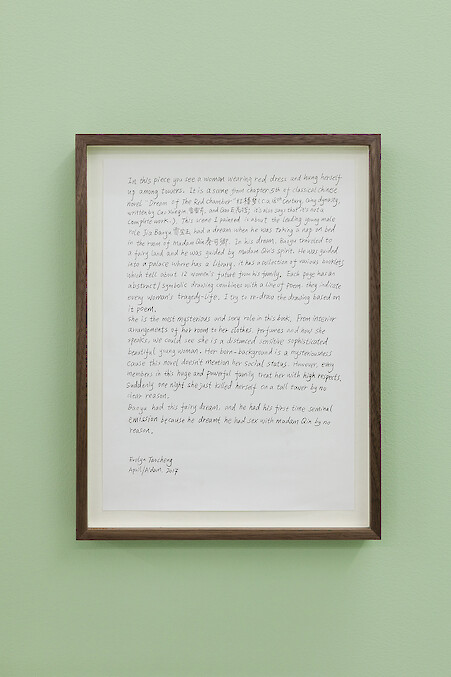 In this piece you see a woman wearing red dress and hung herself
up among towers. It is a scene from chapter 5th of classical chinese
novel "Dream of The Red Chamber" 红楼梦 (c.a. 18th Century, Qing dynasty,
written by Cao Xueqin 曹雪芹, and Gao E 高鹗; its also says that it's not a
complete work.). This scene I painted is about the leading young male
role Jia Baoyu 贾宝玉 had a dream when he was taking a nap on bed
in the room of Madam Qin 秦可卿. In his dream, Baoyu traveled to
a fairy land and he was guided by madam Qin's spirit. He was guided
into a palace where has a library. it has a collection of various booklets
which tell about 12 women's future from his family. Each page has an
abstract/symbolic drawing combines with a line of poem. they indicate
every woman's tragedy-life. I try to re-draw the drawing based on
it poem.
She is the most mysterious and sory role in this book. From interior
arrangements of her room to her clothes, perfumes and how she
speaks, we could see she is a distanced sensitive sophisticated
beautiful young woman. Her born-background is a mysteriousness
cause this novel doesn't mention her social status. However, easy
members in this huge and powerful family treat her with high respects.
Suddenly one night she just killed herself on a tall tower by no
clear reason.
Baoyu had this fairy dream. and he had his first time seminal
emission because he dreamt he had sex with madam Qin by no
reason.
Evelyn Taocheng
April/A'dam, 2017